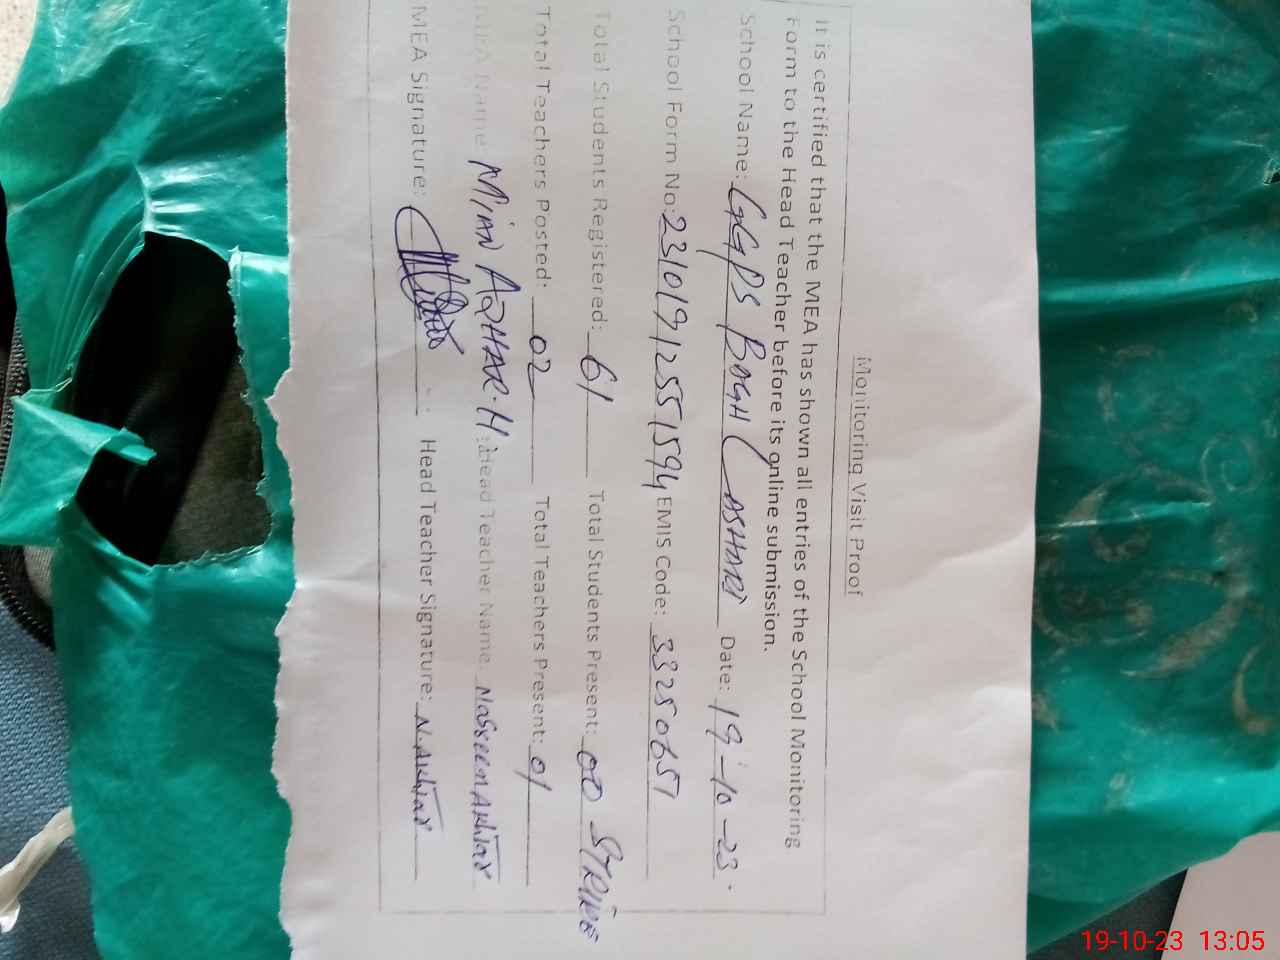 Monitoring Visit Proof
It is certified that the MEA has shown all entries of the School Monitoring
Form to the Head Teacher before its online submission.
School Name: GGPS BOGH (ASHARI Date: 19-10-23.
School Form No: 23101912551594 EMIS Code: 33250651
Total Students Registered: 61 Total Students Present: 00 STRIKE
Total Teachers Posted: 02 Total Teachers Present: 01
MEA Name MIAN AZHAR.H Head Teacher Name. Naseem Akhtar
MEA Signature: Head Teacher Signature: N.Akhtar
19-10-23 13:05